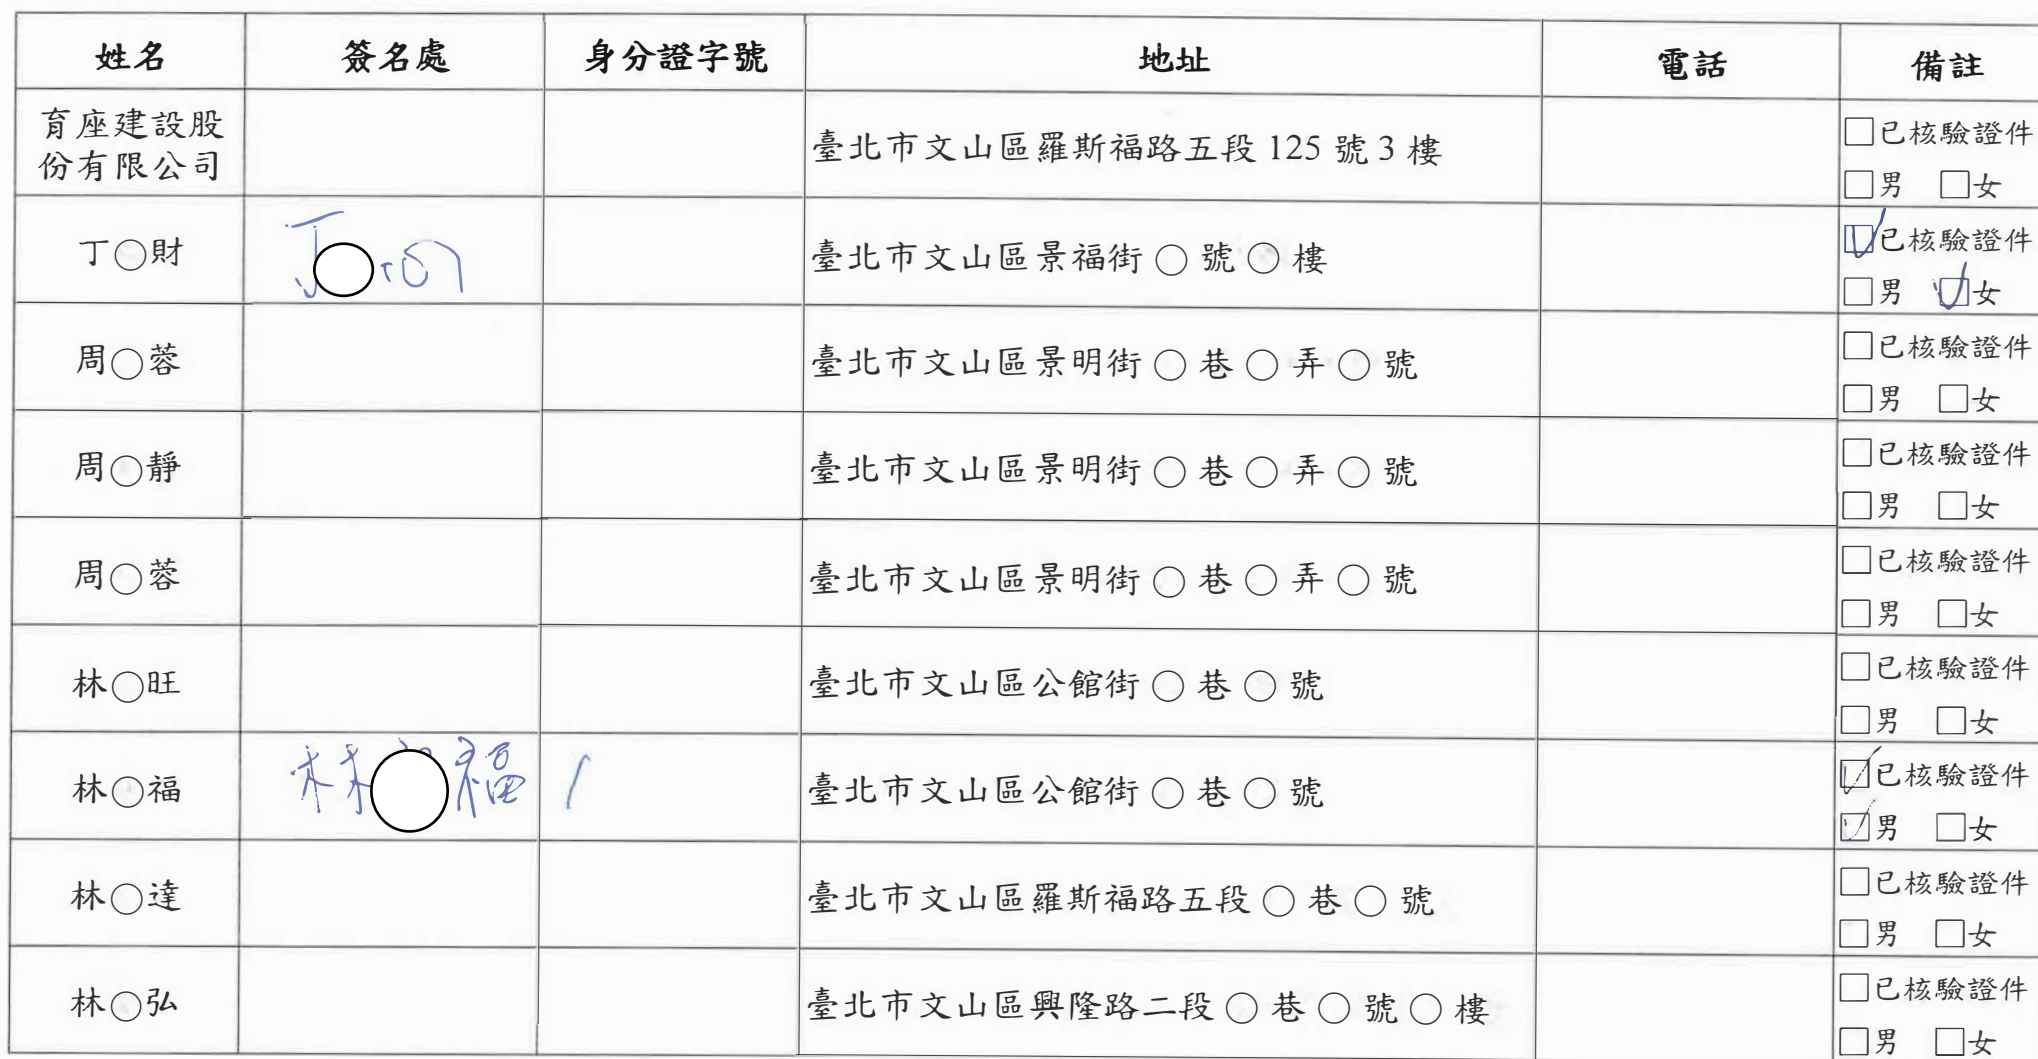 姓名 簽名處 身分證字號 地址 電話 備註
育座建設股
份有限公司
臺北市文山區羅斯福路五段 125 號 3 樓
□已核驗證件
□男 □女
丁○財
丁○
臺北市文山區景福街 ○ 號 ○ 樓
☑已核驗證件
□男 ☑女
周○蓉
臺北市文山區景明街 ○ 巷 ○ 弄 ○ 號
□已核驗證件
□男 □女
周○靜
臺北市文山區景明街 ○ 巷 ○ 弄 ○ 號
□已核驗證件
□男 □女
周○蓉
臺北市文山區景明街 ○ 巷 ○ 弄 ○ 號
□已核驗證件
□男 □女
林○旺
臺北市文山區公館街 ○ 巷 ○ 號
□已核驗證件
□男 □女
林○福
林○福
臺北市文山區公館街 ○ 巷 ○ 號
☑已核驗證件
☑男 □女
林○達
臺北市文山區羅斯福路五段 ○ 巷 ○ 號
□已核驗證件
□男 □女
林○弘
臺北市文山區興隆路二段 ○ 巷 ○ 號 ○ 樓
□已核驗證件
□男 □女